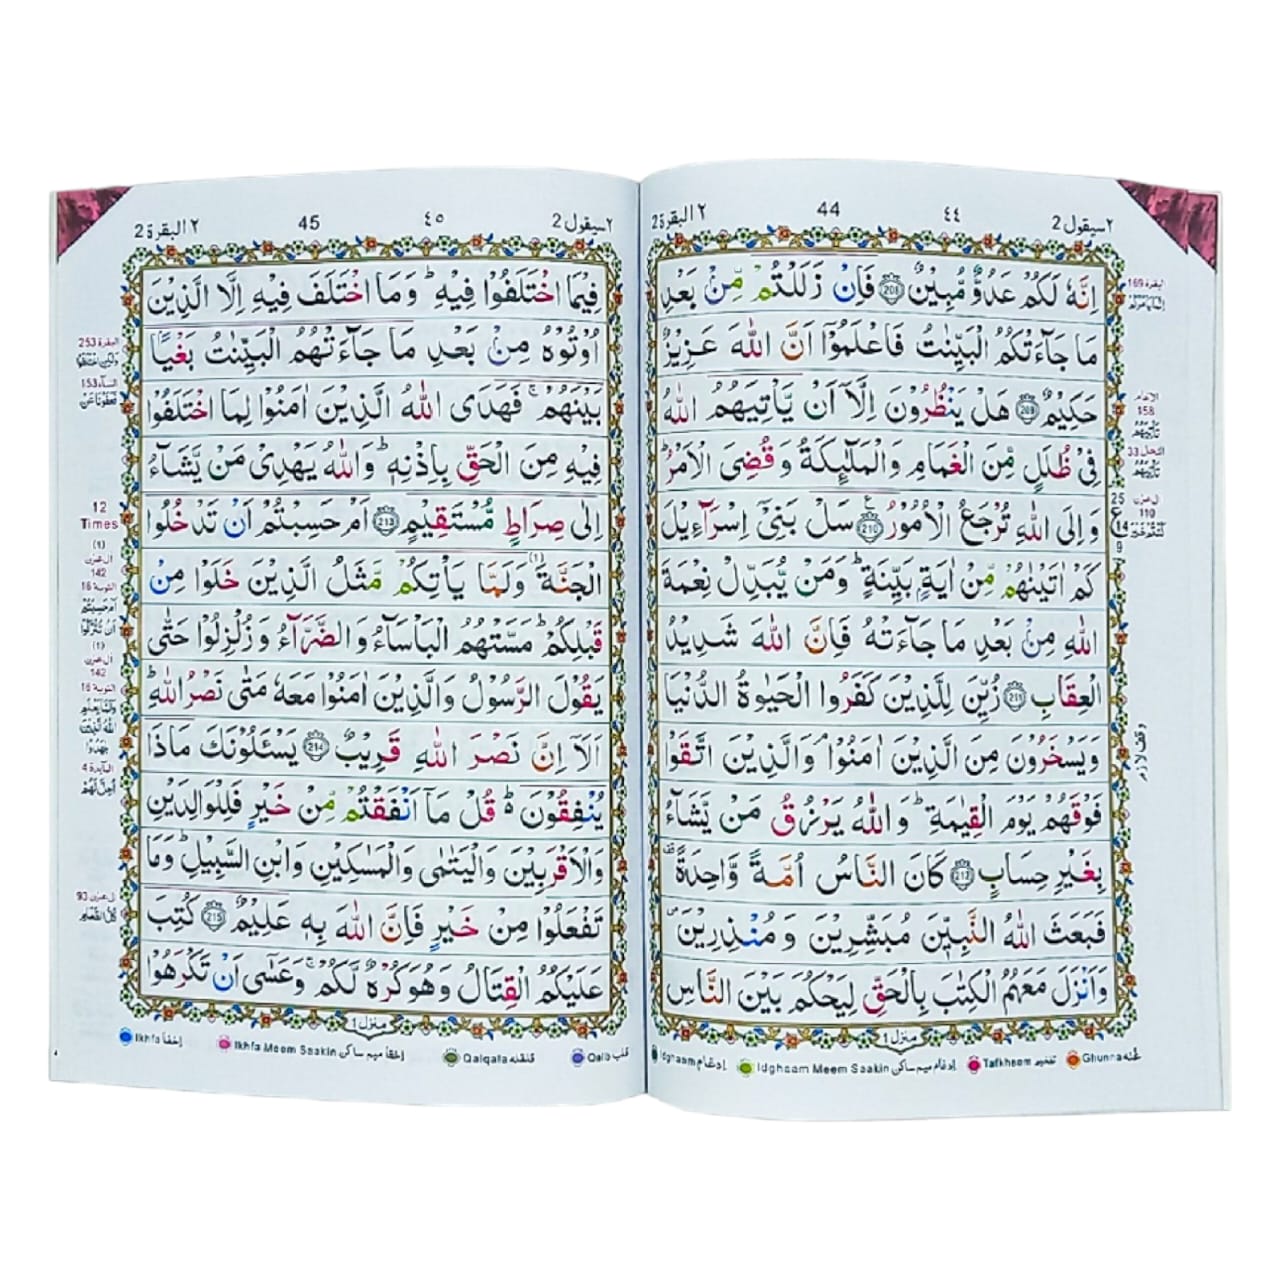 ٢ سیقول 2
٤٤
44
٢ البقرة 2
اِنَّهٗ لَكُمْ عَدُوٌّ مُّبِيْنٌ ﴿208﴾ فَاِنْ زَلَلْتُمْ مِّنْۢ بَعْدِ
مَا جَآءَتْكُمُ الْبَيِّنٰتُ فَاعْلَمُوْۤا اَنَّ اللّٰهَ عَزِيْزٌ
حَكِيْمٌ ﴿209﴾ هَلْ يَنْظُرُوْنَ اِلَّاۤ اَنْ يَّاْتِيَهُمُ اللّٰهُ
فِيْ ظُلَلٍ مِّنَ الْغَمَامِ وَالْمَلٰٓئِكَةُ وَقُضِيَ الْاَمْرُ ؕ
وَاِلَى اللّٰهِ تُرْجَعُ الْاُمُوْرُ ﴿210﴾ سَلْ بَنِيْۤ اِسْرَآءِيْلَ
كَمْ اٰتَيْنٰهُمْ مِّنْ اٰيَةٍۭ بَيِّنَةٍ ؕ وَمَنْ يُّبَدِّلْ نِعْمَةَ
اللّٰهِ مِنْۢ بَعْدِ مَا جَآءَتْهُ فَاِنَّ اللّٰهَ شَدِيْدُ
الْعِقَابِ ﴿211﴾ زُيِّنَ لِلَّذِيْنَ كَفَرُوا الْحَيٰوةُ الدُّنْيَا
وَيَسْخَرُوْنَ مِنَ الَّذِيْنَ اٰمَنُوْا ۘ وَالَّذِيْنَ اتَّقَوْا
فَوْقَهُمْ يَوْمَ الْقِيٰمَةِ ؕ وَاللّٰهُ يَرْزُقُ مَنْ يَّشَآءُ
بِغَيْرِ حِسَابٍ ﴿212﴾ كَانَ النَّاسُ اُمَّةً وَّاحِدَةً
فَبَعَثَ اللّٰهُ النَّبِيّٖنَ مُبَشِّرِيْنَ وَمُنْذِرِيْنَ
وَاَنْزَلَ مَعَهُمُ الْكِتٰبَ بِالْحَقِّ لِيَحْكُمَ بَيْنَ النَّاسِ
منزل 1
البقرة 169
الانعام
158
النحل 33
25
ع
14
9
ال عمرٰن
110
وقف لازم
Idghaam ادغام
Idghaam Meem Saakin ادغام میم ساکن
Tafkheem تفخیم
Ghunna غنه
٢ سیقول 2
٤٥
45
٢ البقرة 2
فِيْمَا اخْتَلَفُوْا فِيْهِ ؕ وَمَا اخْتَلَفَ فِيْهِ اِلَّا الَّذِيْنَ
اُوْتُوْهُ مِنْۢ بَعْدِ مَا جَآءَتْهُمُ الْبَيِّنٰتُ بَغْيًۢا
بَيْنَهُمْ ۚ فَهَدَى اللّٰهُ الَّذِيْنَ اٰمَنُوْا لِمَا اخْتَلَفُوْا
فِيْهِ مِنَ الْحَقِّ بِاِذْنِهٖ ؕ وَاللّٰهُ يَهْدِيْ مَنْ يَّشَآءُ
اِلٰى صِرَاطٍ مُّسْتَقِيْمٍ ﴿213﴾ اَمْ حَسِبْتُمْ اَنْ تَدْخُلُوا
الْجَنَّةَ (1) وَلَمَّا يَاْتِكُمْ مَّثَلُ الَّذِيْنَ خَلَوْا مِنْ
قَبْلِكُمْ ؕ مَسَّتْهُمُ الْبَاْسَآءُ وَالضَّرَّآءُ وَزُلْزِلُوْا حَتّٰى
يَقُوْلَ الرَّسُوْلُ وَالَّذِيْنَ اٰمَنُوْا مَعَهٗ مَتٰى نَصْرُ اللّٰهِ ؕ
اَلَاۤ اِنَّ نَصْرَ اللّٰهِ قَرِيْبٌ ﴿214﴾ يَسْـَٔلُوْنَكَ مَاذَا
يُنْفِقُوْنَ ؕ قُلْ مَاۤ اَنْفَقْتُمْ مِّنْ خَيْرٍ فَلِلْوَالِدَيْنِ
وَالْاَقْرَبِيْنَ وَالْيَتٰمٰى وَالْمَسٰكِيْنِ وَابْنِ السَّبِيْلِ ؕ وَمَا
تَفْعَلُوْا مِنْ خَيْرٍ فَاِنَّ اللّٰهَ بِهٖ عَلِيْمٌ ﴿215﴾ كُتِبَ
عَلَيْكُمُ الْقِتَالُ وَهُوَ كُرْهٌ لَّكُمْ ۚ وَعَسٰۤى اَنْ تَكْرَهُوْا
منزل 1
البقرة 253
النسآء 153
12
Times
(1)
ال عمرٰن
142
التوبة 16
اَمْ حَسِبْتُمْ
(1)
ال عمرٰن
142
التوبة 16
المآئدة 4
ال عمرٰن 93
Ikhfa اخفا
Ikhfa Meem Saakin اخفا میم ساکن
Qalqala قلقله
Qalb قلب